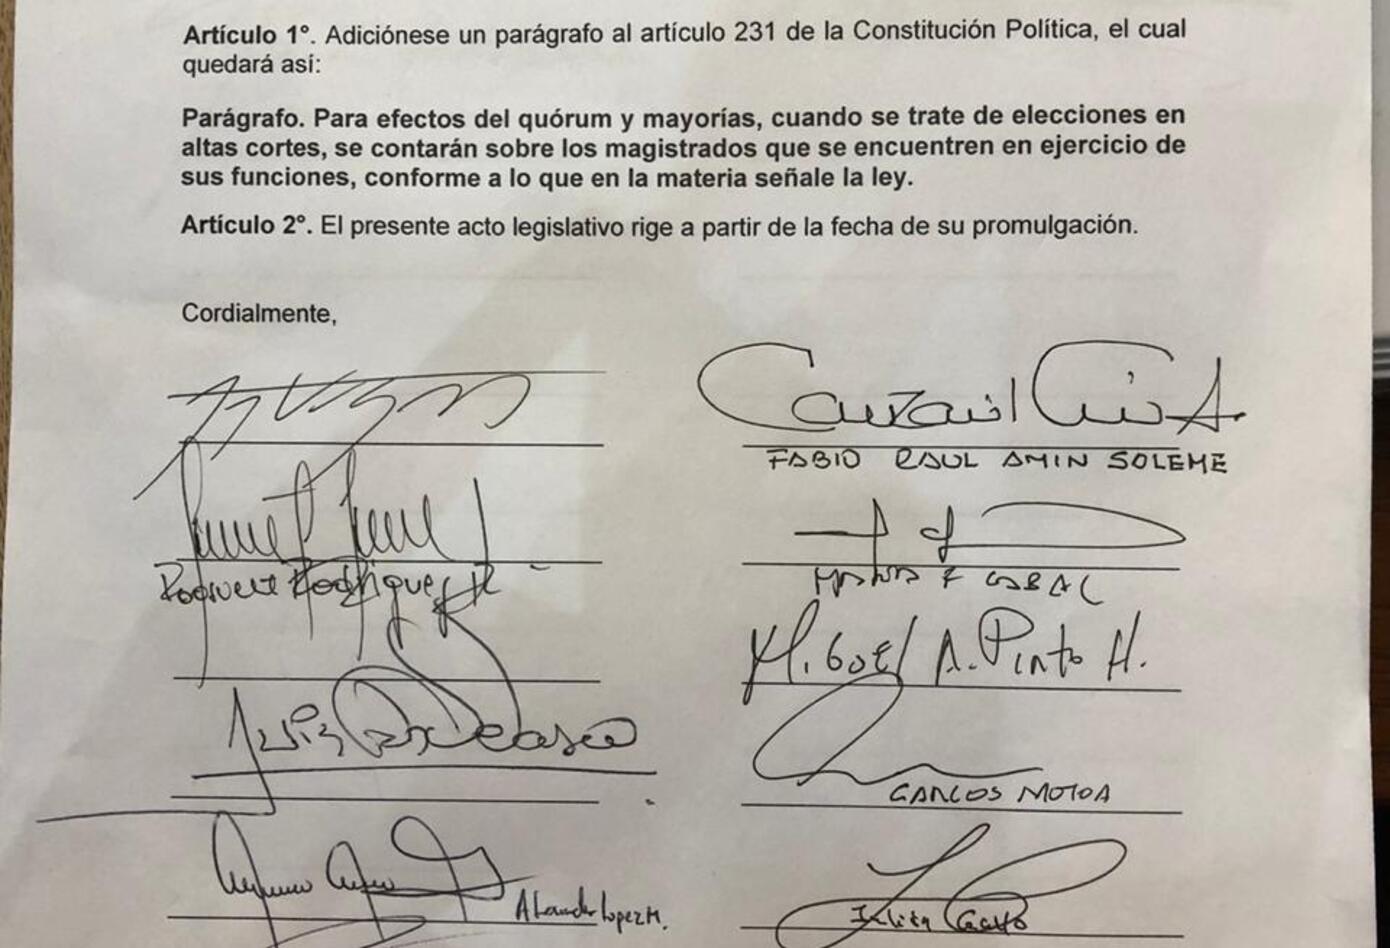 Artículo 1°. Adiciónese un parágrafo al artículo 231 de la Constitución Política, el cual
quedará así:
Parágrafo. Para efectos del quórum y mayorías, cuando se trate de elecciones en
altas cortes, se contarán sobre los magistrados que se encuentren en ejercicio de
sus funciones, conforme a lo que en la materia señale la ley.
Artículo 2°. El presente acto legislativo rige a partir de la fecha de su promulgación.
Cordialmente,
FABIO RAUL AMIN SALEME
Rodríguez
Miguel A. Pinto H.
CARLOS MOTOA
Alexander Lopez M.